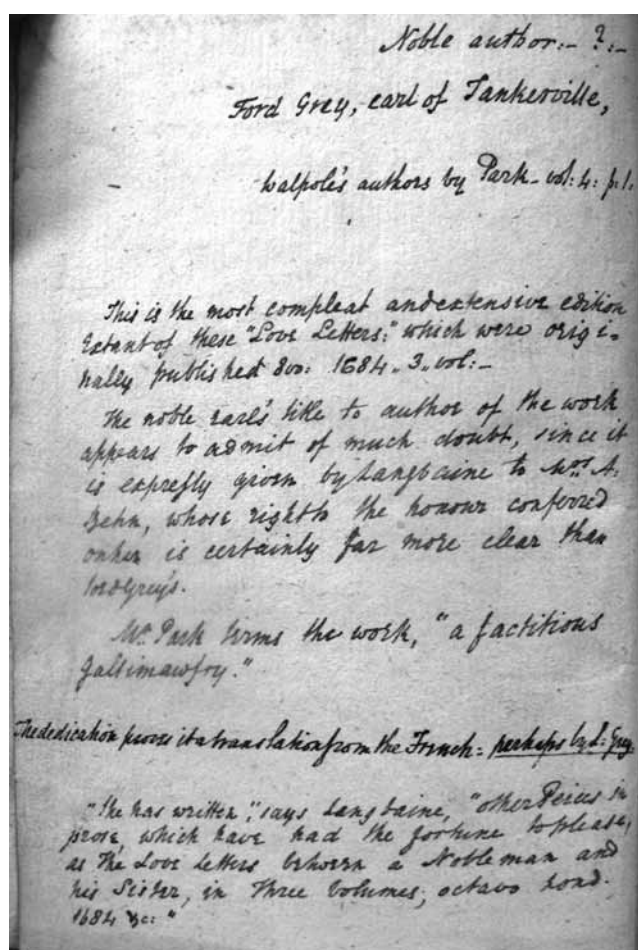 Noble author:- ?:-
Ford Grey, earl of Tankerville,
Walpole's authors by Park - vol: 4: p: 1.
This is the most compleat and extensive edition
Extant of these "Love Letters:" which were origi-
nally published 8vo: 1684. 3. vol:-
The noble earl's title to author of the work
appears to admit of much doubt, since it
is expressly given by Langbaine to Mrs. A.
Behn, whose right to the honour conferred
on her is certainly far more clear than
lord Grey's.
Mr. Park terms the work, "a factitious
gallimawfry."
The dedication proves it a translation from the French = perhaps by L: Grey.
"She has written," says Langbaine, "other Peices in
prose, which have had the fortune to please;
as the Love Letters between a Nobleman and
his Sister, in three volumes, octavo Lond.
1684 &c: "